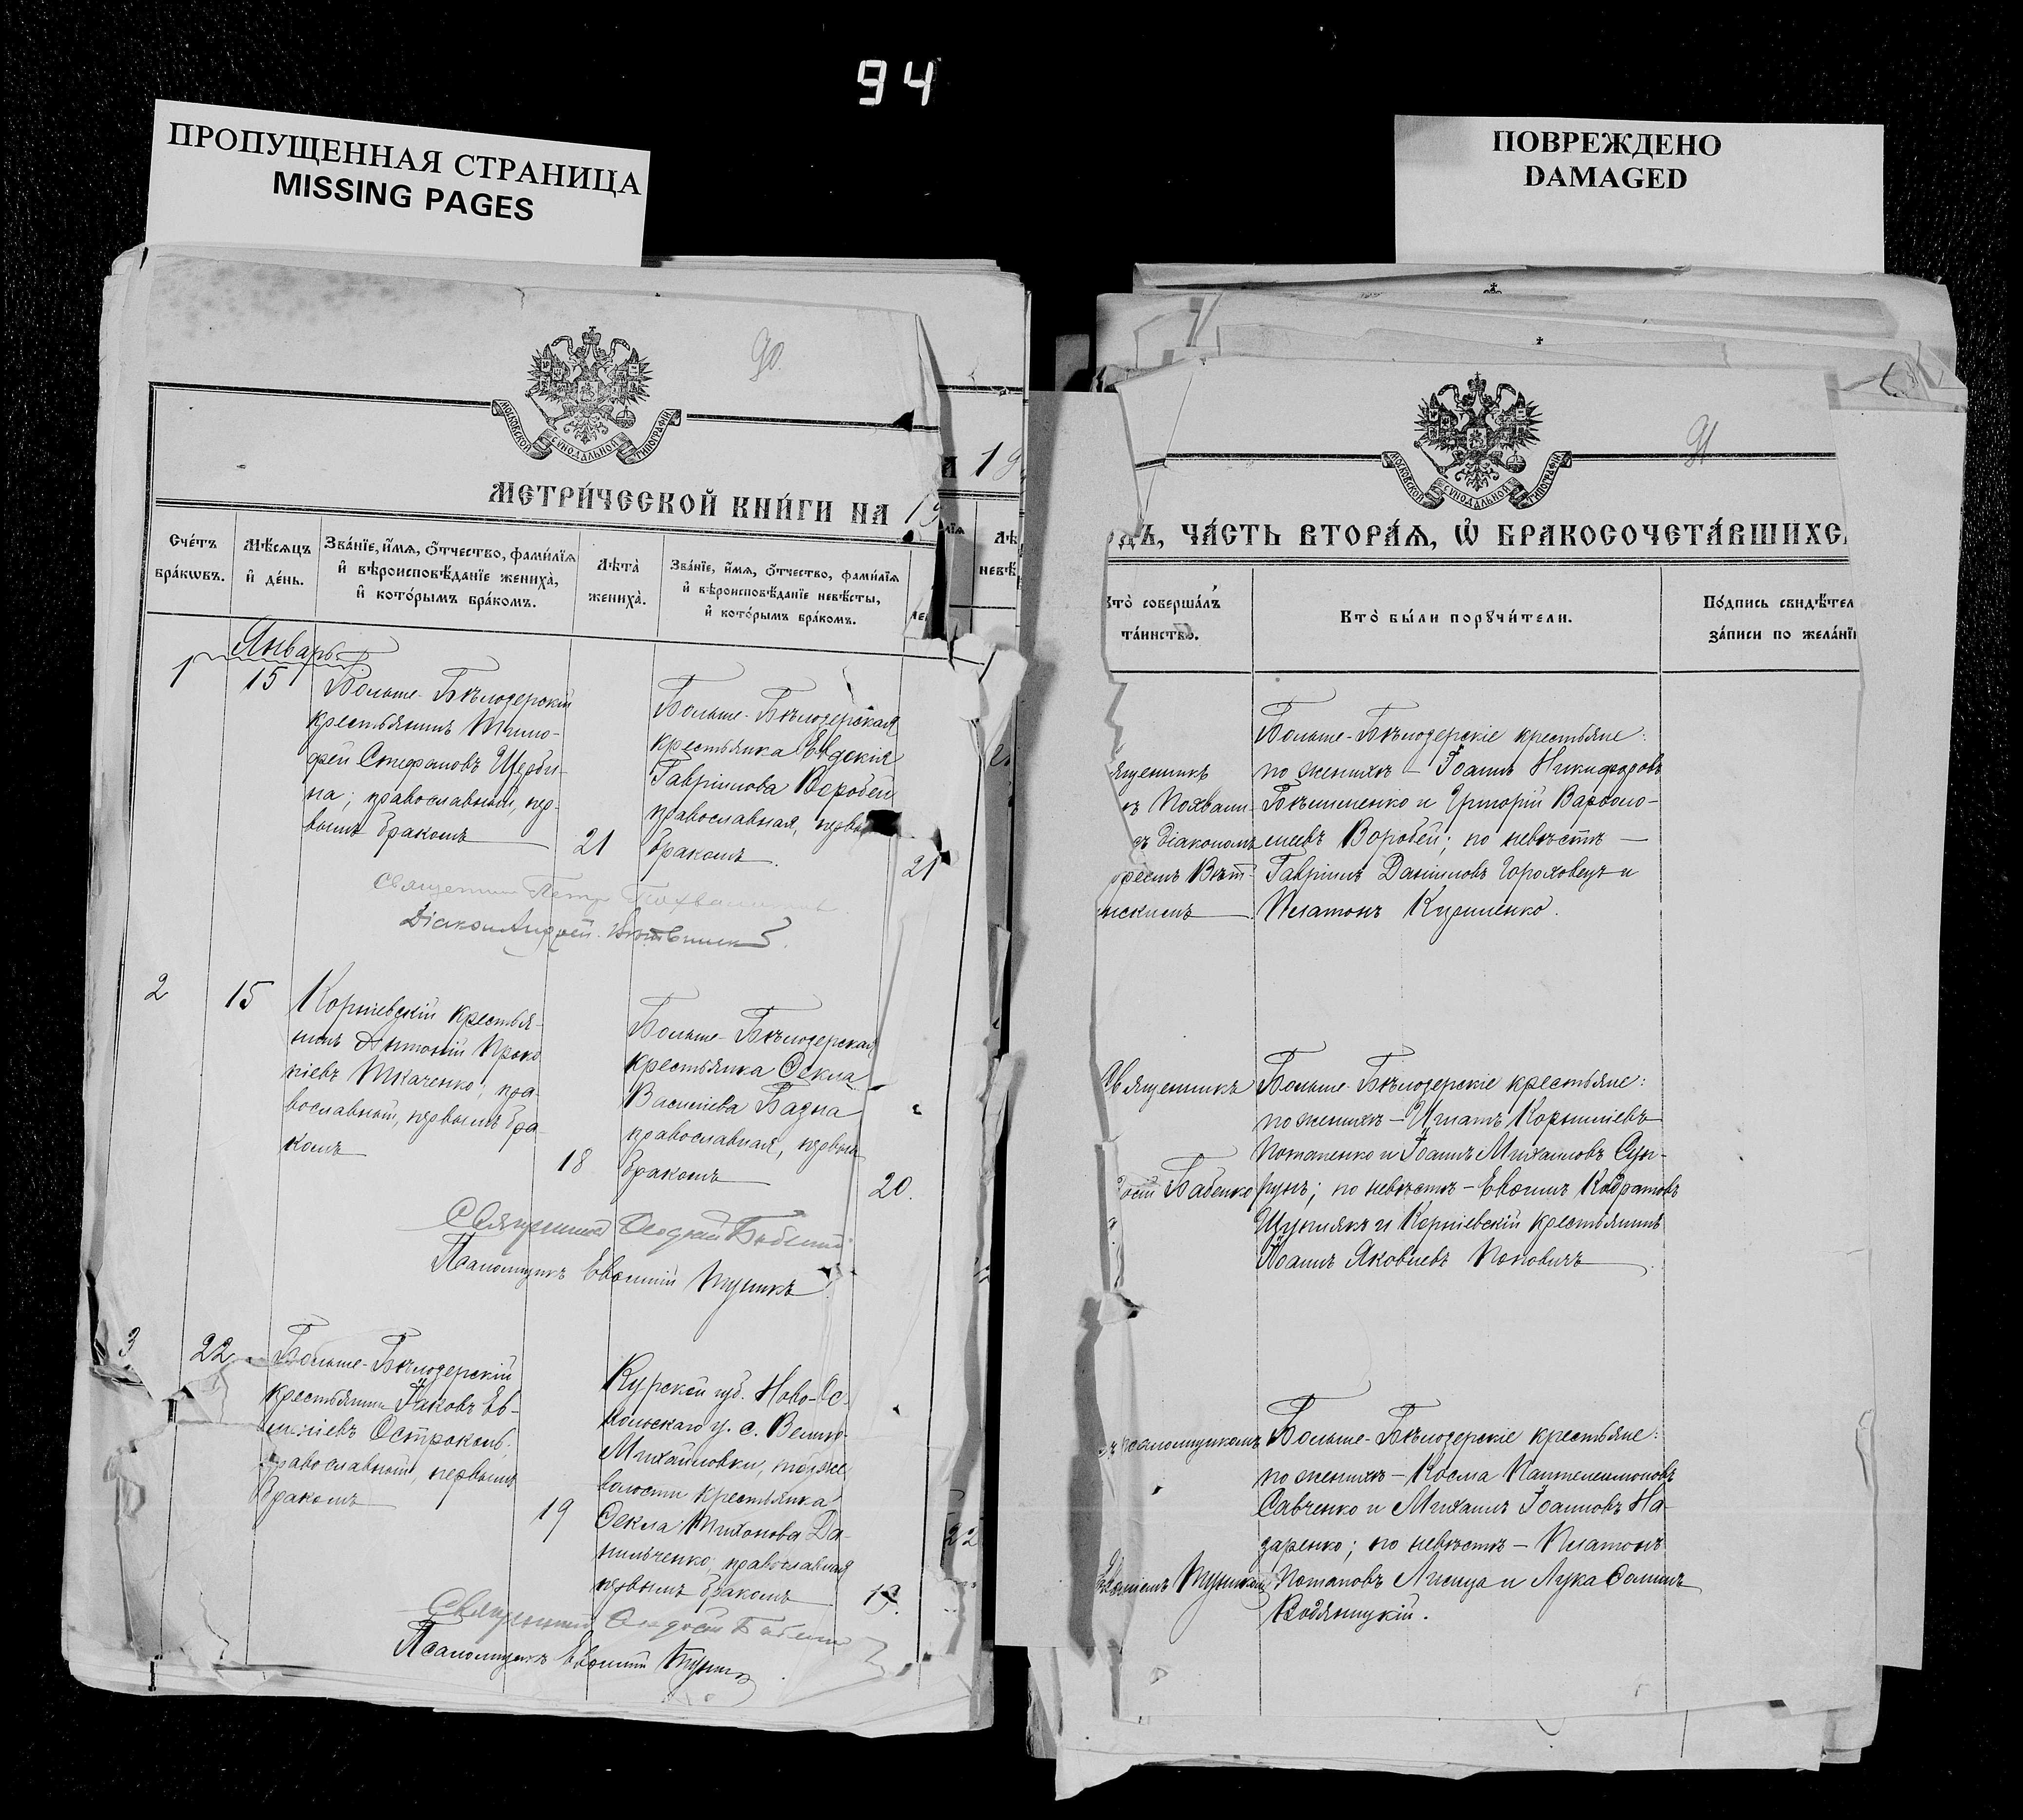 94
ПРОПУЩЕННАЯ СТРАНИЦА
MISSING PAGES
90
МОСКОВСКОЙ СѴНОДАЛЬНОЙ ТИПОГРАФІИ
МЕТРИ́ЧЕСКОЙ КНИ́ГИ НА 19
Сче́тъ бра́кѡвъ.
Мѣ́сѧцъ и҆ де́нь.
Зва́нїе, и҆́мѧ, ѻ҆́тчество, фами́лїѧ
и҆ вѣроисповѣ́данїе жениха̀,
и҆ кото́рымъ бра́комъ.
Лѣта̀ жениха̀.
Зва́нїе, и҆́мѧ, ѻ҆́тчество, фами́лїѧ
и҆ вѣроисповѣ́данїе невѣ́сты,
и҆ кото́рымъ бра́комъ.
Январь
1
15
Больше-Бѣлозерскій
крестьянинъ Тимо-
фей Стефановъ Щерби-
на; православный, пер-
вымъ бракомъ
21
Больше-Бѣлозерская
крестьянка Евдокія
Гавріилова Воробей
православная, первы
бракомъ.
21
Священникъ Петръ Похвалитовъ
Діаконъ Андрей
2
15
Корніевскій крестья-
нинъ Антоній Проко
піевъ Ткаченко; пра-
вославный, первымъ бра-
комъ
18
Больше-Бѣлозерская
крестьянка Ѳекла
Василіева Бадна
православная, первым
бракомъ
20.
Священникъ Ѳеодосій Бабенко
Псаломщикъ Евѳимій Тупикъ
3
22
Больше-Бѣлозерскій
крестьянинъ Іаковъ Ев-
меніевъ Острокопъ,
православный, первымъ
бракомъ
19
Курской губ. Ново-Ос-
кольскаго у. с. Велико-
Михайловки, той же
волости крестьянка
Ѳекла Тихонова Да-
нильченко, православная
первымъ бракомъ
19.
22
Священникъ Ѳеодосій Бабенко
Псаломщикъ Евѳимій Тупикъ
ПОВРЕЖДЕНО
DAMAGED
91
МОСКОВСКОЙ СѴНОДАЛЬНОЙ ТИПОГРАФІИ
ДЪ, ЧА́СТЬ ВТОРА́Ѧ, Ѽ БРАКОСОЧЕТА́ВШИХС
Кто̀ соверша́лъ
та́инство.
Кто̀ бы́ли порꙋчи́тели.
По́дпись свидѣ́тел
за́писи по жела́нї
ященникъ
ъ Похвали-
ъ діакономъ
дреемъ Вѣт-
нскимъ
Больше-Бѣлозерскіе крестьяне:
по женихѣ - Іоаннъ Никифоровъ
Бѣлименко и Григорій Варѳоло-
меевъ Воробей; по невѣстѣ -
Гавріилъ Даніиловъ Гороховецъ и
Платонъ Курпленко.
Священникъ
досій Бабенко
Больше-Бѣлозерскіе крестьяне:
по женихѣ - Игнатъ Корниліевъ
Потапенко и Іоаннъ Михаиловъ Сун-
рунъ; по невѣстѣ - Евѳимъ Кодратовъ
Щуплякъ и Корніевскій крестьянинъ
Іоаннъ Яковлевъ Поповичъ
ъ псаломщикомъ
Евѳиміемъ Тупикомъ
Больше-Бѣлозерскіе крестьяне:
по женихѣ - Косма Пантелеимоновъ
Савченко и Михаилъ Іоанновъ На-
заренко; по невѣстѣ - Платонъ
Потаповъ Лисица и Лука Ѳоминъ
Водяницкій.